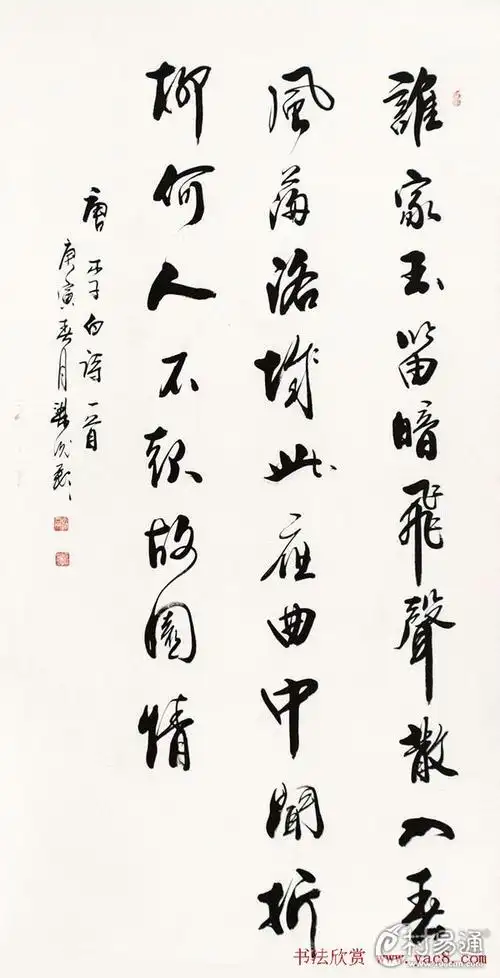 誰家玉笛暗飛聲散入春
風滿洛城此夜曲中聞折
柳何人不起故園情
唐李白詩一首
庚寅春月
书法欣赏 www.yac8.com
村易通